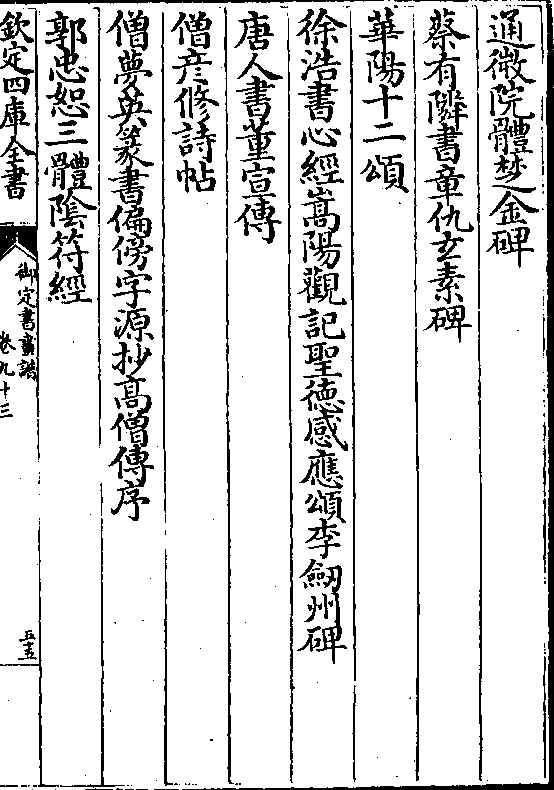 通微院體梵金碑
蔡有隣書章仇玄素碑
華陽十二頌
徐浩書心經嵩陽觀記聖德感應頌李劒州碑
唐人書董宣傳
僧彦修詩帖
僧夢英篆書偏傍字源抄高僧傳序
郭忠恕三體隂符經
欽定四庫全書
御定書畫譜
卷九十三
五五